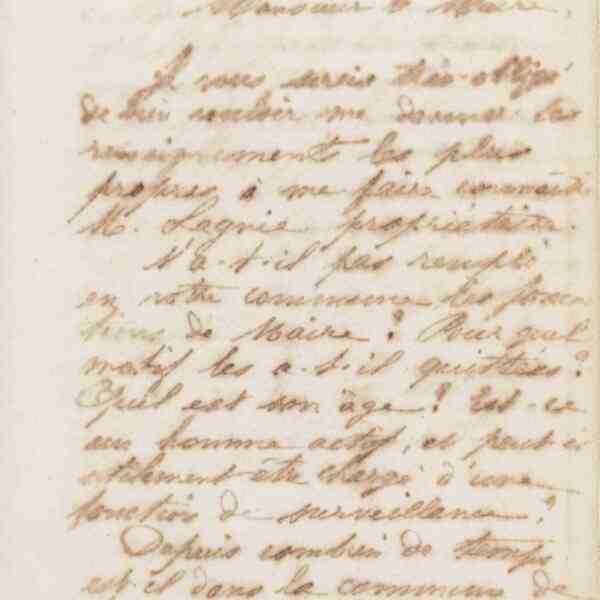 Monsieur le Maire,
Je vous serais très-obligé
de bien vouloir me donner les
renseignements les plus
propres à me faire connaitre
M. Lagnie propriétaire.
N'a-t-il pas rempli
en votre commune les fonc
tions de Maire ? Pour quel
motif les a-t-il quittées ?
Quel est son âge ? Est-ce
un homme actif, et peut-il
utilement être chargé d'une
fonction de surveillance ?
Depuis combien de temps
est-il dans la commune de